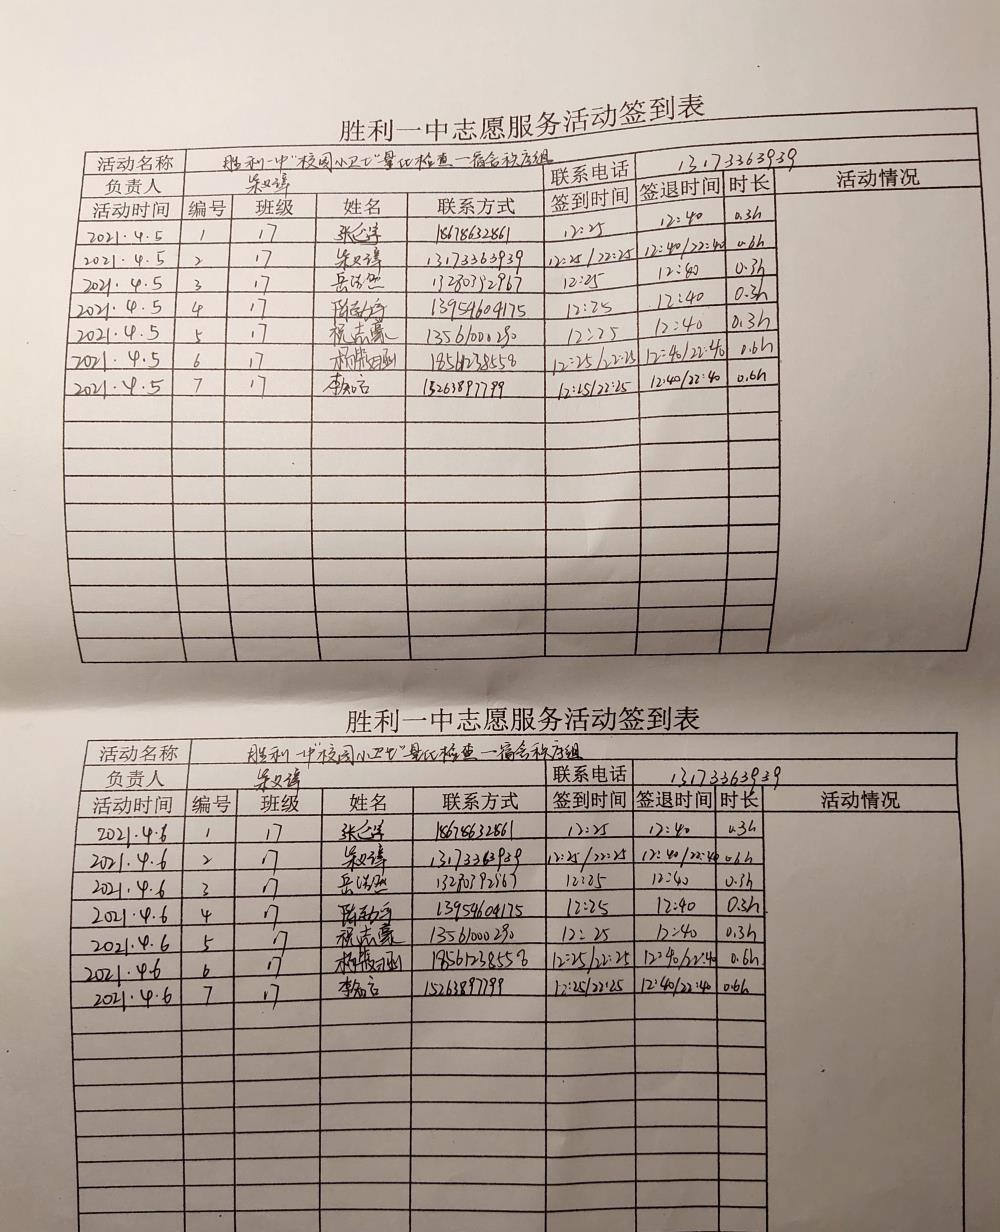 胜利一中志愿服务活动签到表
活动名称 胜利一中"校园小卫士"量化检查—宿舍秩序组 联系电话 13173363939
负责人 活动情况
活动时间 编号 班级 姓名 联系方式 签到时间 签退时间 时长
2021.4.5 1 17 18678632861 12:25 12:40 0.3h
2021.4.5 2 17 13173363939 12:25/22:25 12:40/22:40 0.6h
2021.4.5 3 17 岳浩然 13280392967 12:25 12:40 0.3h
2021.4.5 4 17 13954604175 12:25 12:40 0.3h
2021.4.5 5 17 祝志豪 12:25 12:40 0.3h
2021.4.5 6 17 18561238558 12:25/22:25 12:40/22:40 0.6h
2021.4.5 7 17 15263897799 12:25/22:25 12:40/22:40 0.6h
胜利一中志愿服务活动签到表
活动名称 胜利一中"校园小卫士"量化检查—宿舍秩序组
负责人 联系电话 13173363939
活动时间 编号 班级 姓名 联系方式 签到时间 签退时间 时长 活动情况
2021.4.6 1 17 18678632861 12:25 12:40 0.3h
2021.4.6 2 17 13173363939 12:25/22:25 12:40/22:40 0.6h
2021.4.6 3 17 岳浩然 13280392967 12:25 12:40 0.3h
2021.4.6 4 17 13954604175 12:25 12:40 0.3h
2021.4.6 5 17 祝志豪 12:25 12:40 0.3h
2021.4.6 6 17 18561238558 12:25/22:25 12:40/22:40 0.6h
2021.4.6 7 17 15263897799 12:25/22:25 12:40/22:40 0.6h